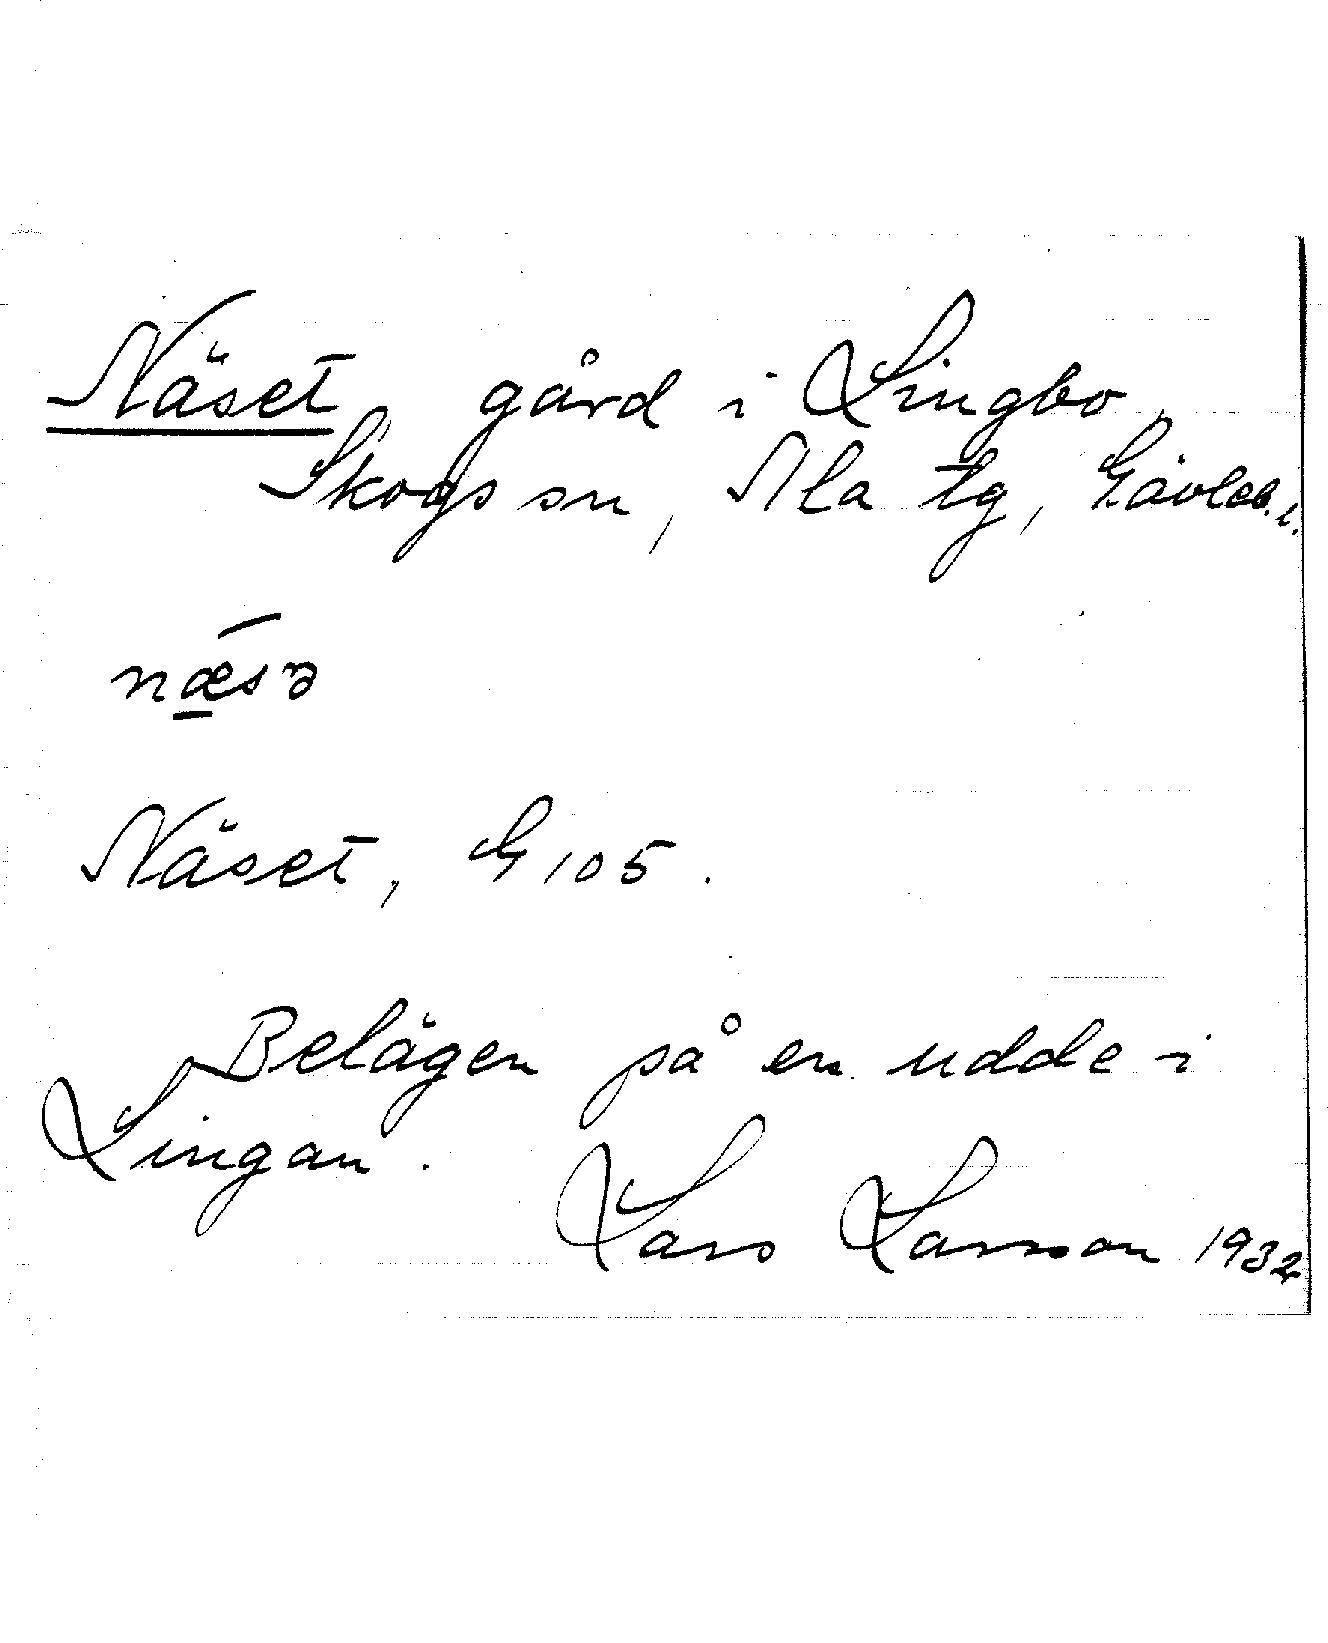 Näset, gård i Lingbo,
Skogs sn, Ala tg, Gävleb. l.
næsə
Näset, G 105.
Belägen på en udde i
Lingan.
Lars Larsson 1932